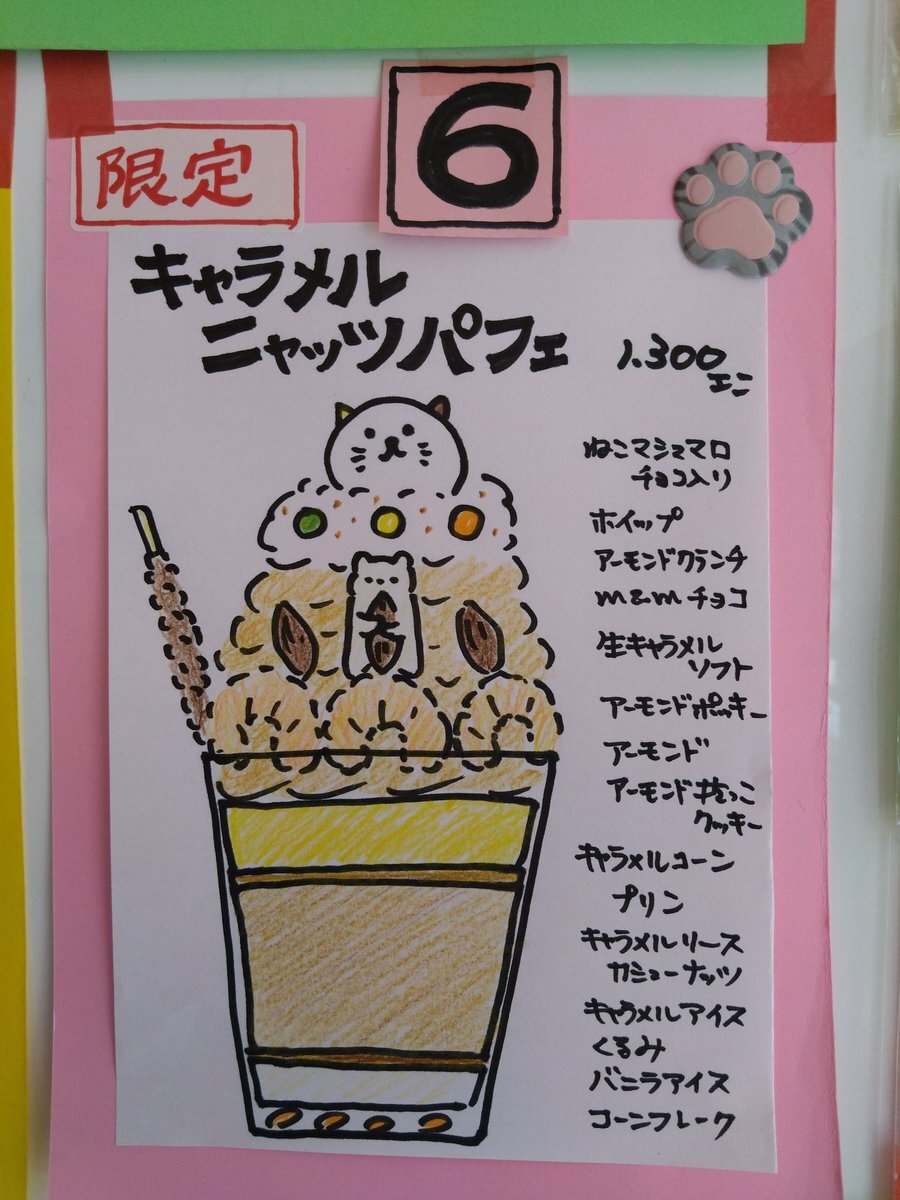 6
限定
キャラメル
ニャッツパフェ
1.300
エニ
ねこマシュマロ
チョコ入り
ホイップ
アーモンドクランチ
m&mチョコ
生キャラメル
ソフト
アーモンドポッキー
アーモンド
アーモンド抱っこ
クッキー
キャラメルコーン
プリン
キャラメルソース
カシューナッツ
キャラメルアイス
くるみ
バニラアイス
コーンフレーク